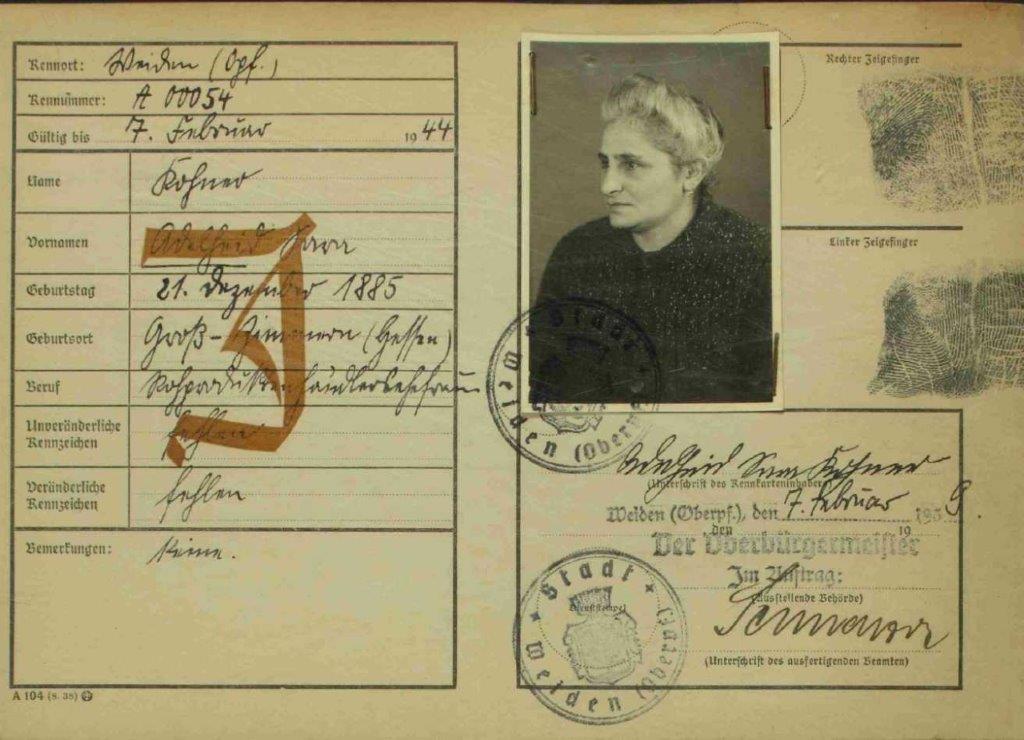 Kennort: Weiden (Opf.)
Kennummer: A 00054
Gültig bis 7. Februar 1944
Name Kohner
Vornamen Adelheid Sara
Geburtstag 21. Dezember 1885
Geburtsort Groß-Zimmern (Hessen)
Beruf Rohproduktenhändlersehefrau
Unveränderliche Kennzeichen fehlen
Veränderliche Kennzeichen fehlen
Bemerkungen: Keine.
J
A 104 (8. 38)
Rechter Zeigefinger
Linker Zeigefinger
Stadt Weiden (Oberpf.)
Adelheid Sara Kohner
(Unterschrift des Kennkarteninhabers)
Weiden (Oberpf.), den 7. Februar 1939
den 19
Der Oberbürgermeister
Im Auftrag:
(Ausstellende Behörde)
(Unterschrift des ausfertigenden Beamten)
Stadt Weiden (Oberpf.)
(Dienststempel)